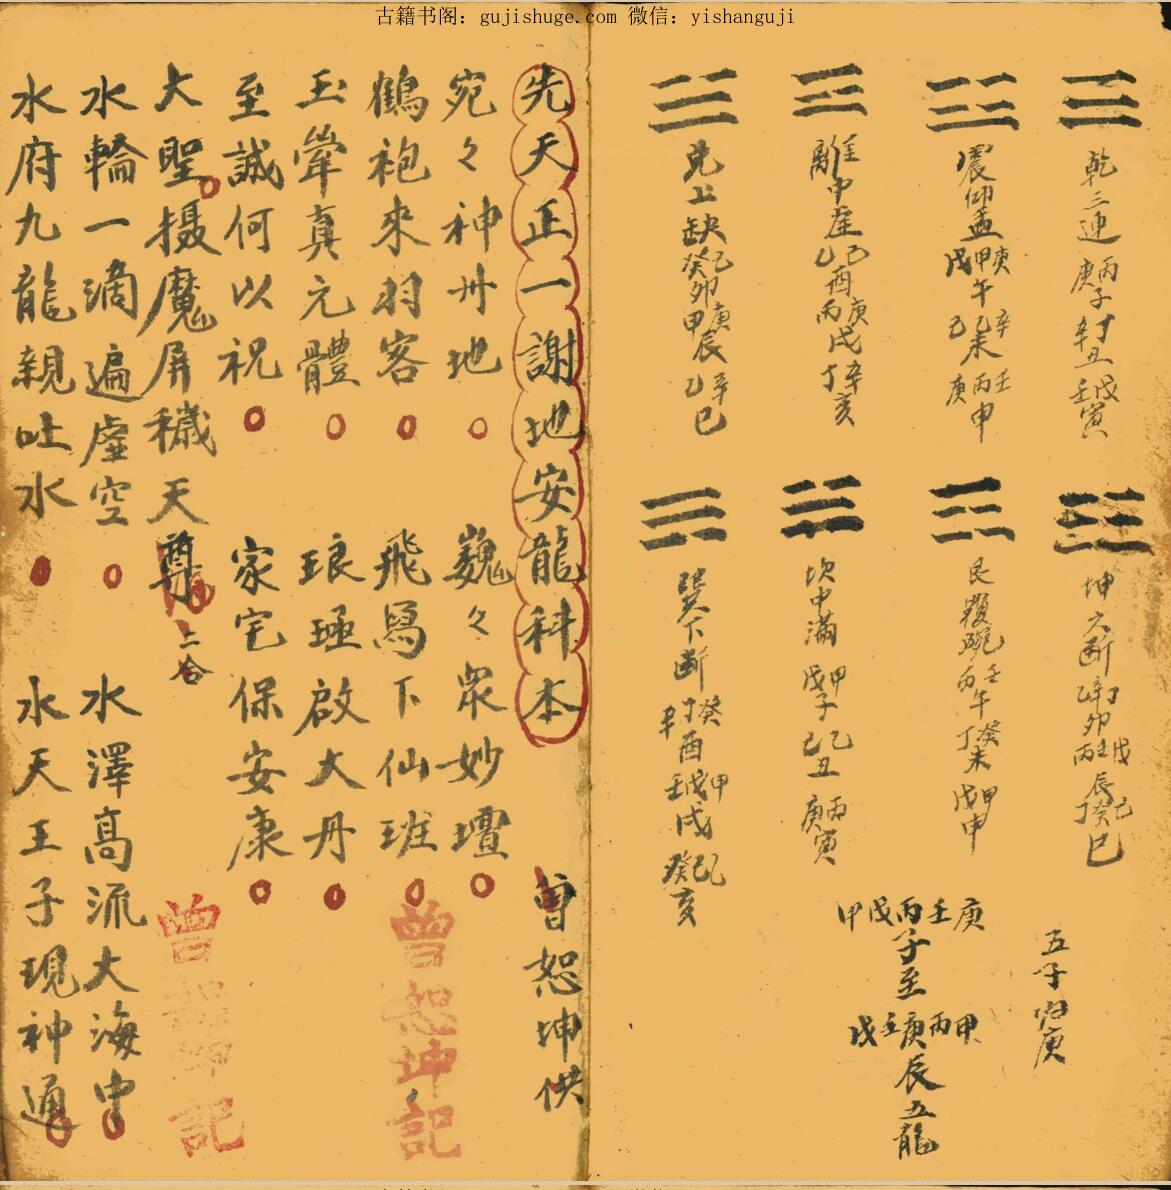 古籍书阁：gujishuge.com 微信：yishanguji
乾三連 庚丙子辛丁丑壬戊寅
震仰盂 戊甲庚午己乙辛未庚丙壬申
離中虛 乙己酉丙庚戌丁辛亥
兌上缺 癸乙卯甲庚辰乙辛巳
坤六断
艮覆碗 丙壬午丁癸未戊甲申
坎中滿 戊甲子己乙丑庚丙寅
巽下断
五子归庚
甲戊丙壬庚子至
戊壬庚丙甲辰五龍
先天正一謝地安龍科本 曾恕坤供
宛々神州地 巍々眾妙壇
鶴袍來羽客 飛舄下仙班
玉峯真元體 琅函啟大丹
至誠何以祝 家宅保安康
大聖摄魔屏穢天尊 二合
水輪一滴遍虛空 水澤高流大海中
水府九龍親吐水 水天王子現神通
曾恕坤記
曾恕坤記